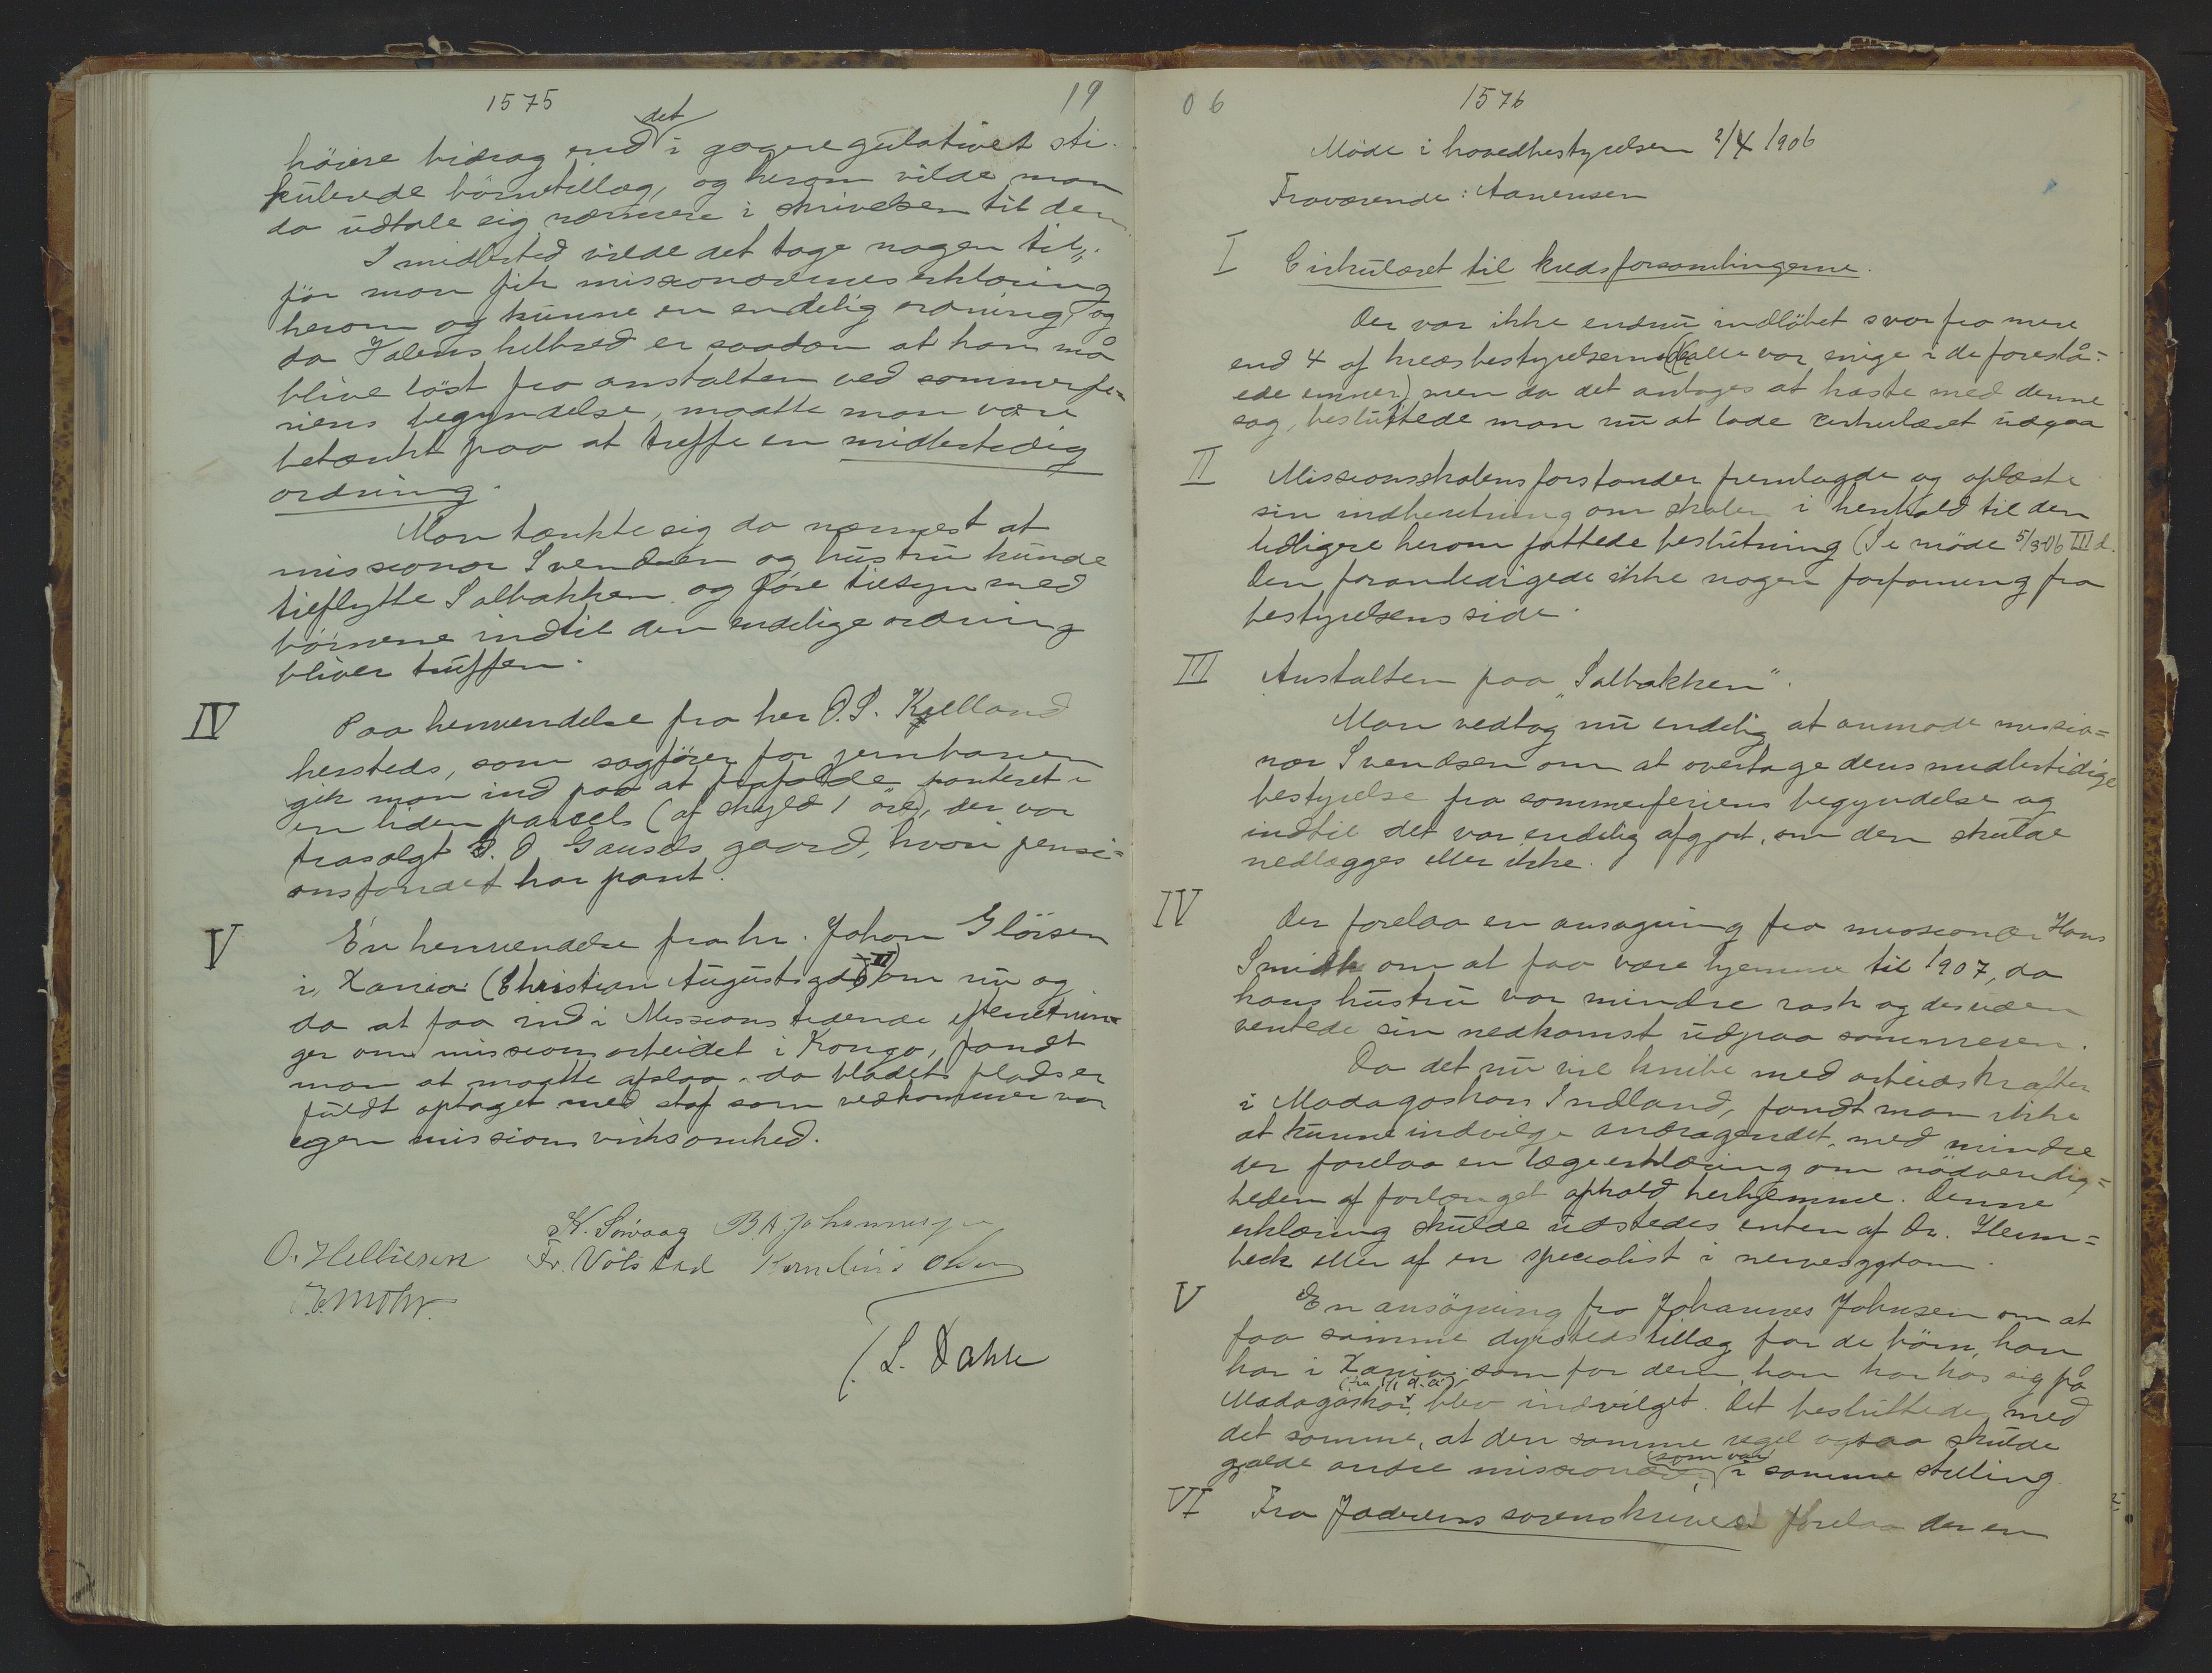 1575
19
höiere bidrag end det i gageregulativet sti-
pulerede börnetillæg, og herom vilde man
da udtale sig nærmere i skrivelsen til dem.
Imidlertid vilde det tage nogen tid,
för man fik missionærernes erklæring
herom og kunne en endelig ordning, og
da Valens helbred er saadan at han må
blive löst fra anstalten ved sommerfe-
riens begyndelse, maatte man være
betænkt paa at treffe en midlertidig
ordning.
Man tænkte sig da nærmest at
missionær Svendsen og hustru kunde
tilflytte Solbakken og före tilsyn med
börnene indtil den endelige ordning
bliver truffen.
IV
Paa henvendelse fra her O.S. Kielland
hersteds, som sagförer for jernbanen
gik man ind paa at frafalde panteret i
en liden parcel (af skyld 1 öre), der var
frasolgt S. O. Gausels gaard, hvori pensi=
onsfondet har pant.
V
En henvendelse fra hr. Johan Glörsen
i Xania (Christian Augusts gd 6 II) om nu og
da at faa ind i Missionstidende efterretnin=
ger om missionsarbeidet i Kongo, fandt
man at maatte afslaa, da bladets plads er
fuldt optaget med stof som vedkommer vor
egen missionsvirksomhed.
K. Sörvaag B. A. Johannesen
O. Helliesen Fr. Völstad Kornelius Olsen
E. Mohr.
/. L. Dahle
06
1576
Möde i hovedbestyrelsen 2/4 1906
Fraværende: Aanensen
I Cirkulæret til kredsforsamlingerne.
Der var ikke endnu indlöbet svar fra mere
end 4 af kredsbestyrelserne (de alle var enige i de foreslå=
ede emner) men da det antages at haste med denne
sag, besluttede man nu at lade cirkulæret udgaa
II Missionsskolens forstander fremlagde og oplæste
sin indberetning om skolen i henhold til den
tidligere herom fattede beslutning (Se möde 5/3-06 III d.
Den foranledigede ikke nogen forföining fra
bestyrelsens side.
III Anstalten paa „Solbakken".
Man vedtog nu endelig at anmode missio=
nær Svendsen om at overtage dens midlertidige
bestyrelse fra sommerferiens begyndelse og
indtil det var endelig afgjort, om den skulde
nedlægges eller ikke.
IV
Der forelaa en ansögning fra missionær Hans
Smith om at faa være hjemme til 1907, da
hans hustru var mindre rask og desuden
ventede sin nedkomst udpaa sommeren.
Da det nu vil knibe med arbeidskræfter
i Madagaskars Indland, fandt man ikke
at kunne indvilge andragendet, med mindre
der forelaa en lægeerklæring om nödvendig=
heden af forlænget ophold herhjemme. Denne
erklæring skulde udstedes enten af Dr. Heim=
beck eller af en specialist i nervesygdom.
V
En ansögning fra Johannes Johnsen om at
faa samme dyrtidstillæg for de börn, han
har i Xania, som for dem, han har hos sig på
(fra 1/1 d. a.)
Madagaskar, blev indvilget. Det besluttedes med
det samme, at den samme regel ogsaa skulde
gjælde andre missionærer, som var i samme stilling.
VI Fra Jæderens sorenskriveri forelaa der en